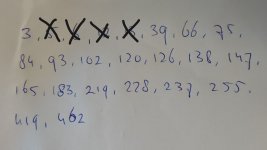 3, 39, 66, 75,
84, 93, 102, 120, 126, 138, 147,
165, 183, 219, 228, 237, 255,
419, 462